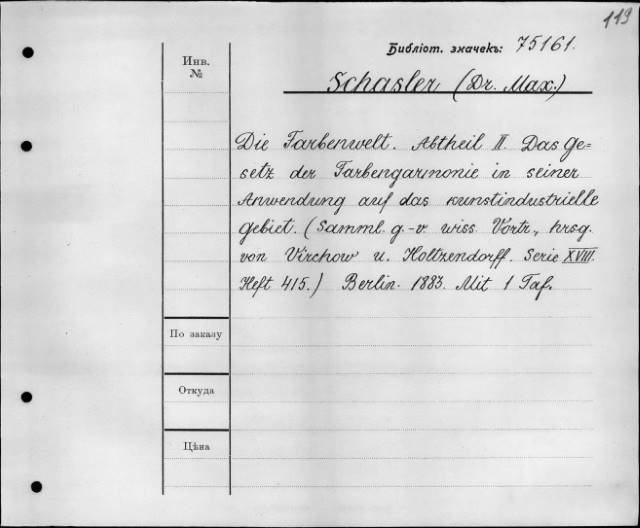 113
Библіот. значекъ: 75161.
Инв.
№
Schasler (Dr. Max.)
Die Farbenwelt. Abtheil II. Das Ge=
setz der Farbengarmonie in seiner
Anwendung auf das kunstindustrielle
gebiet. (Samml. g.-v. wiss. Vortr., hrsg.
von Virchow u. Holtzendorff. Serie XVIII.
Heft 415.) Berlin. 1883. Mit 1 Taf.
По заказу
Откуда
Цѣна